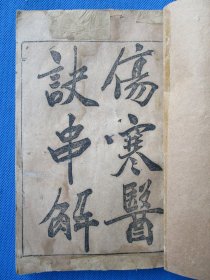 傷寒醫
訣串解